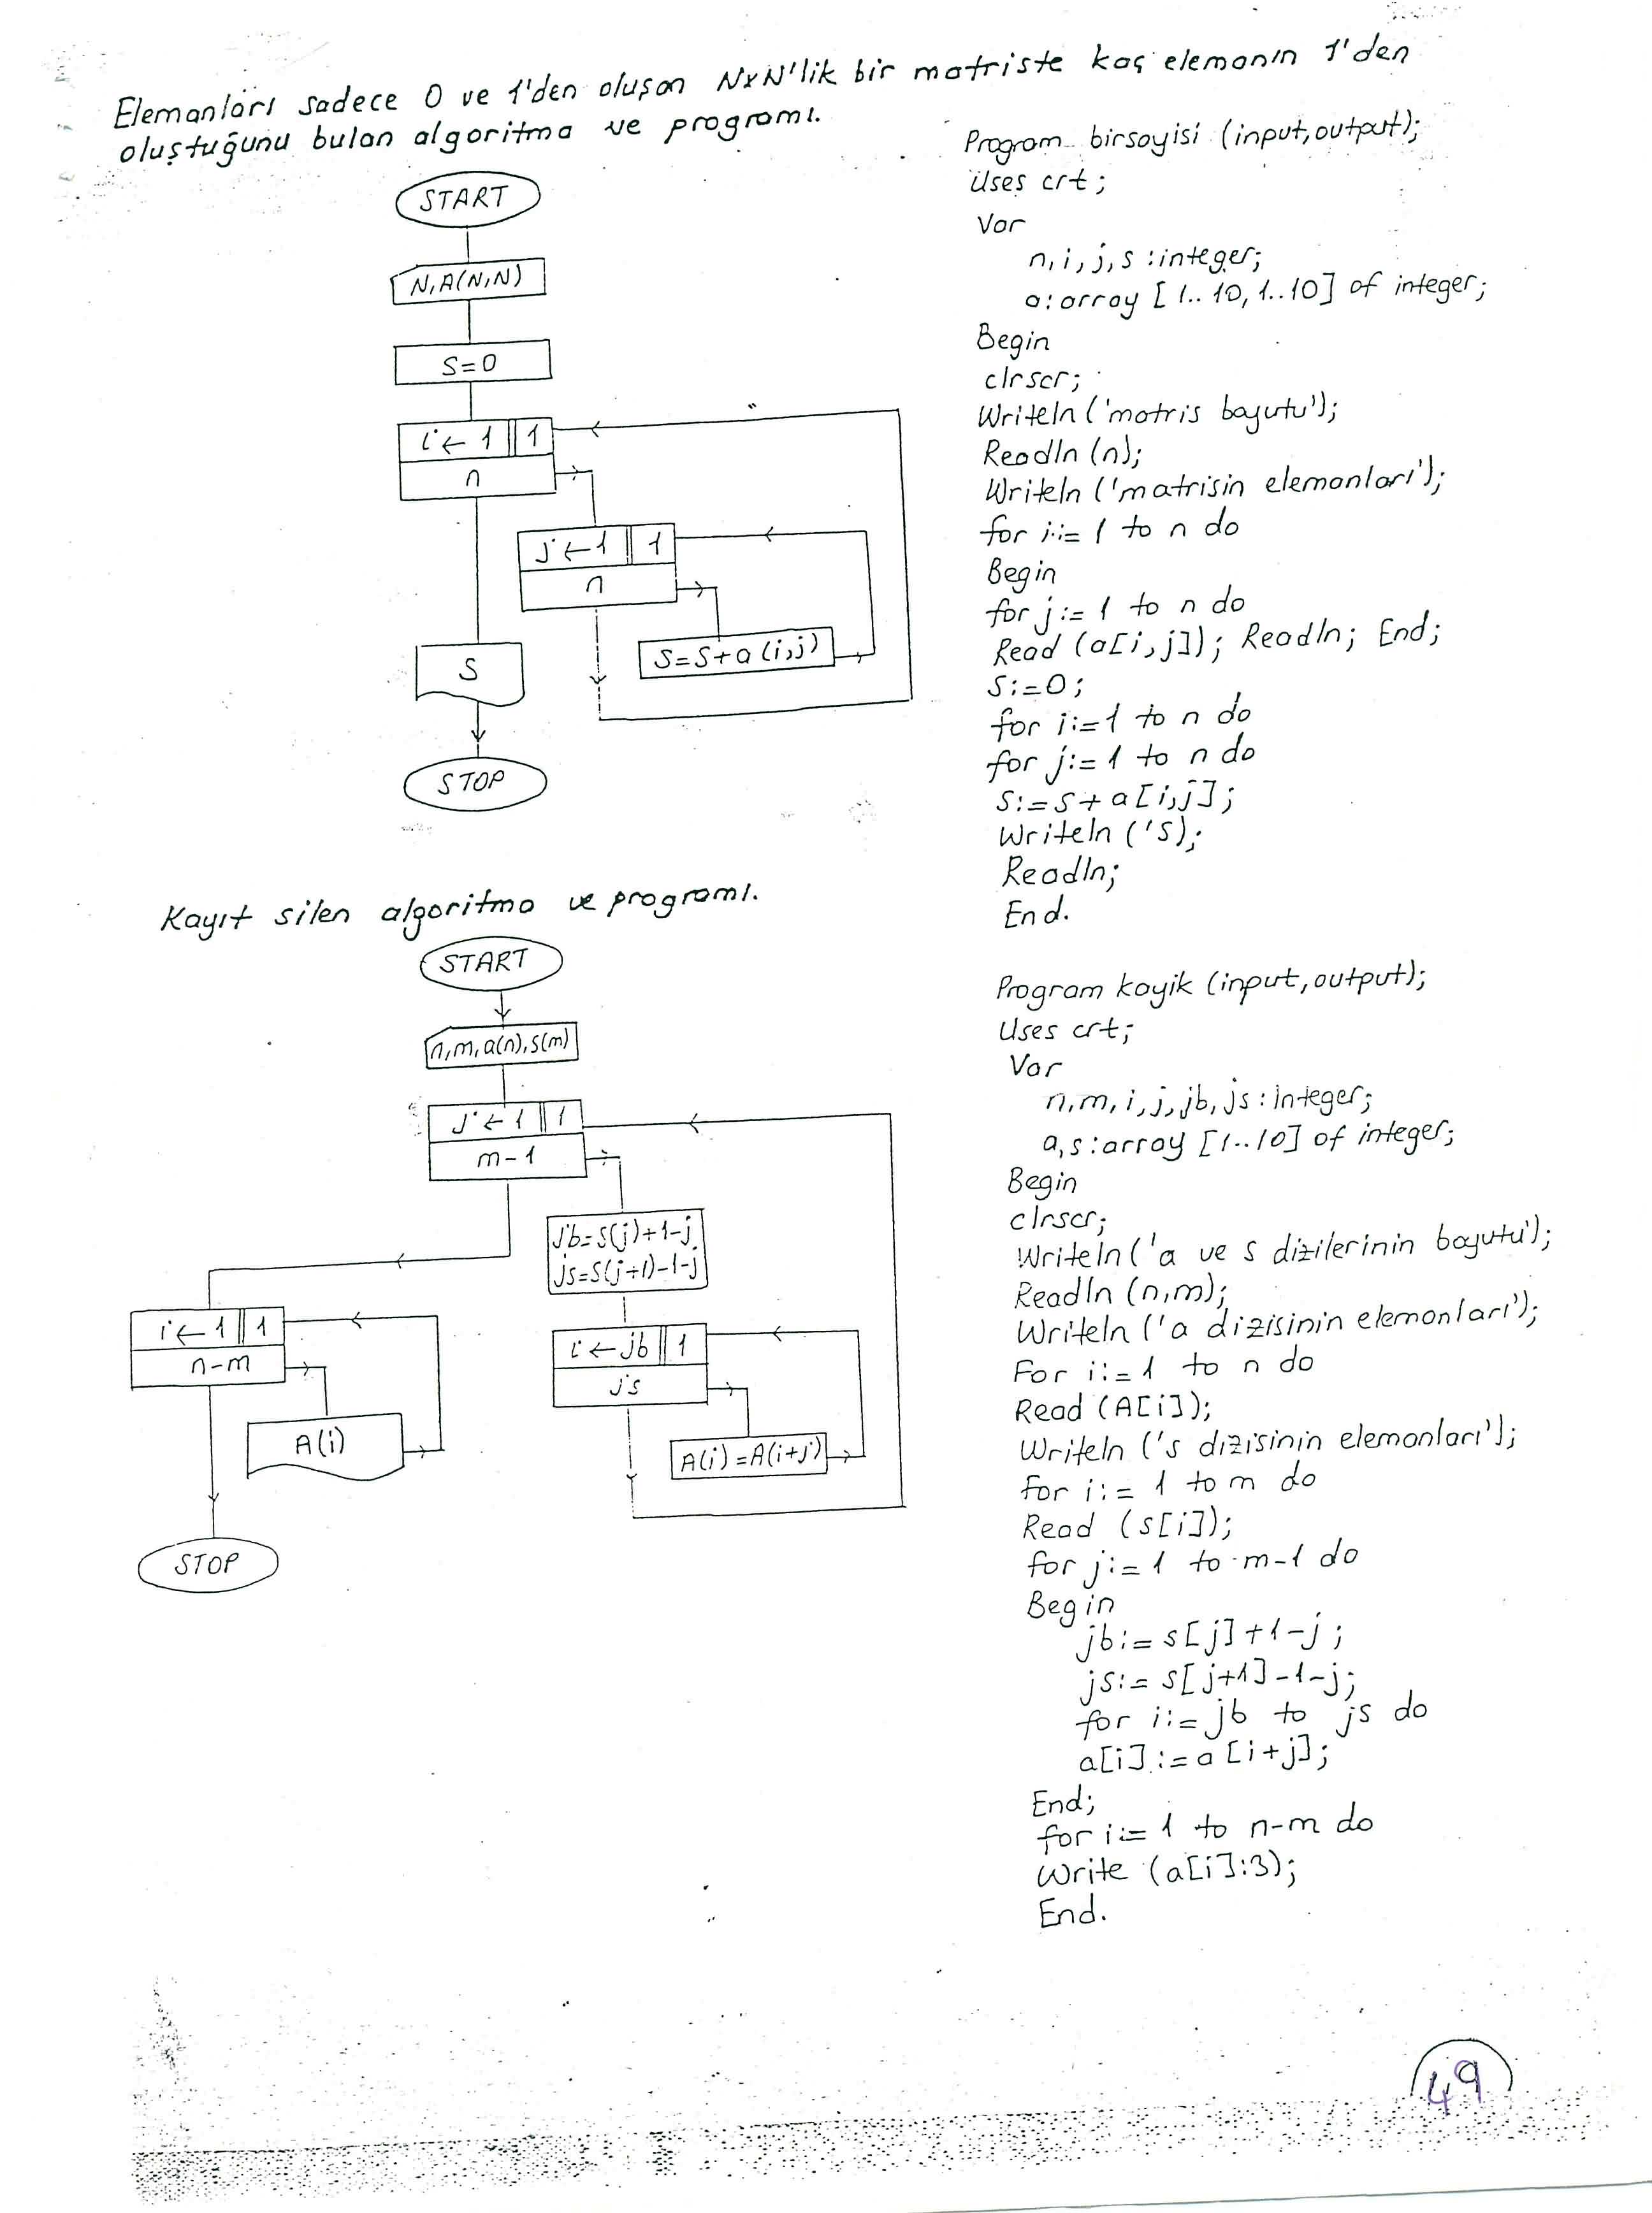 Elemanları sadece 0 ve 1'den oluşan NxN'lik bir matriste kaç elemanın 1'den
oluştuğunu bulan algoritma ve programı.
START
N,A(N,N)
S=0
i ← 1 1
n
j ← 1 1
n
S=S+a(i,j)
S
STOP
Program birsayisi (input,output);
Uses crt;
Var
n,i,j,s :integer;
a:array [1..10,1..10] of integer;
Begin
clrscr;
Writeln('matris boyutu');
Readln(n);
Writeln('matrisin elemanları');
for i:=1 to n do
Begin
for j:=1 to n do
Read (a[i,j]); Readln; End;
S:=0;
for i:=1 to n do
for j:=1 to n do
S:=S+a[i,j];
Writeln('S);
Readln;
End.
Kayıt silen algoritma ve programı.
START
n,m,a(n),s(m)
j ← 1 1
m-1
jb=s(j)+1-j
js=s(j+1)-1-j
i ← jb 1
js
A(i)=A(i+j)
i ← 1 1
n-m
A(i)
STOP
Program kayik (input,output);
Uses crt;
Var
n,m,i,j,jb,js:integer;
a,s:array [1..10] of integer;
Begin
clrscr;
Writeln('a ve s dizilerinin boyutu');
Readln(n,m);
Writeln('a dizisinin elemanları');
For i:=1 to n do
Read (A[i]);
Writeln('s dizisinin elemanları');
for i:=1 to m do
Read (s[i]);
for j:=1 to m-1 do
Begin
jb:=s[j]+1-j;
js:=s[j+1]-1-j;
for i:=jb to js do
a[i]:=a[i+j];
End;
for i:=1 to n-m do
Write (a[i]:3);
End.
49